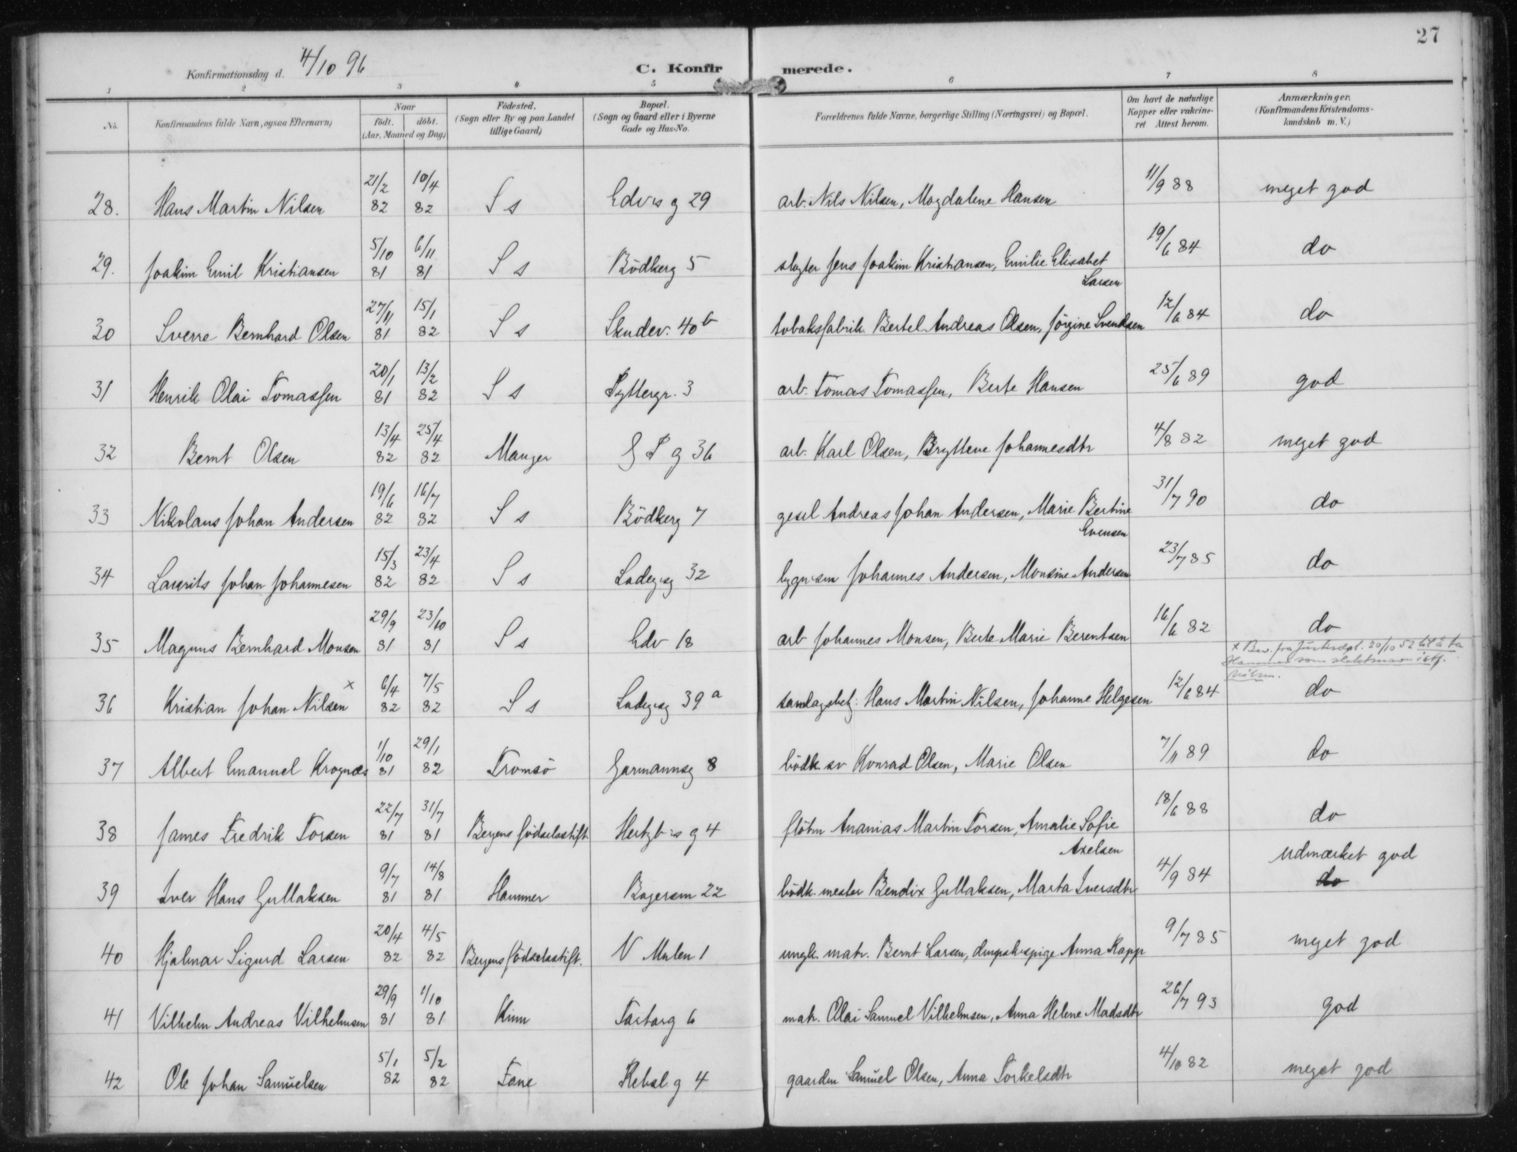 27
Konfirmationsdag d. 4/10 96 C. Konfirmerede.
1 2 3 4 5 6 7 8
No. Konfirmandens fulde Navn, ogsaa Efternavn) Naar født. døbt. (Aar, Maaned og Dag) Fødested. (Sogn eller By og paa Landet tillige Gaard) Bopæl. (Sogn og Gaard eller i Byerne Gade og Hus-No. Forældrenes fulde Navne, borgerlige Stilling (Næringsvei) og Bopæl. Om havt de naturlige Kopper eller vakcineret Attest herom. Anmærkninger. (Konfirmandens Kristendomskundskab m. V.)
28. Hans Martin Nilsen 21/2 82 10/4 82 S s Edvs g 29 arb. Nils Nilsen, Magdalene Hansen 11/9 88 meget god
29. Joakim Emil Kristiansen 5/10 81 6/11 81 S s Bödkerg 5 slagter Jens Joakim Kristiansen, Emilie Elisabet Larsen 19/6 84 do
30 Sverre Bernhard Olsen 27/11 81 15/1 82 S s Skudev. 40 b tobaksfabrik Bertel Andreas Olsen, Jörgine Svendsen 12/6 84 do
31 Henrik Olai Tomassen 20/1 81 13/2 82 S s Pyttergr. 3 arb. Tomas Tomassen, Berte Hansen 25/6 89 god
32 Bernt Olsen 13/4 82 25/4 82 Manger g 36 arb. Karl Olsen, Brytteve Johannesdtr 4/8 82 meget god
33 Nikolaus Johan Andersen 19/6 82 16/7 82 S s Bödkerg 7 gesel Andreas Johan Andersen, Marie Bertine Evensen 31/7 90 do
34 Lauritz Johan Johannesen 15/3 82 23/4 82 S s Ladegsg 32 Johannes Andersen, Monsine Andersen 23/7 85 do
35 Magnus Bernhard Monsen 29/9 81 23/10 81 S s Edv 18 arb Johannes Monsen, Berte Marie Berentsen 16/6 82 do
x Bev. fra Justisdept. 20/10 52 til å ta
36 Kristian Johan Nilsen x 6/4 82 7/5 82 S s Ladegsg 39 a Hans Martin Nilsen, Johanne Helgesen 12/6 84 do
37 Albert Emanuel Krognæs 1/10 81 29/1 82 Tromsö Garmannsg 8 bödk. sv Konrad Olsen, Marie Olsen 7/11 89 do
38 James Fredrik Torsen 22/7 81 31/7 81 Bergens födselsstift. Hertzb s g 4 flötm Ananias Martin Torsen, Amalie Sofie Axelsen 18/6 88 do
39 Iver Hans Gullaksen 9/7 81 14/8 81 Hammer Bagersm 22 bödk. mester Bendix Gullaksen, Marta Iversdtr 4/9 84 udmærket god do
40 Hjalmar Sigurd Larsen 20/4 82 4/5 82 Bergens födselsstift. V Mulen 1 ungk. matr. Bernt Larsen, Anna Rapp 9/7 85 meget god
41 Vilhelm Andreas Vilhelmsen 29/9 81 1/10 81 Kinn Tartarg 6 matr. Olai Samuel Vilhelmsen, Anna Helene Madsdtr 26/7 93 god
42 Ole Johan Samuelsen 5/1 82 5/2 82 Fane g 4 gaardm Samuel Olsen, Anna Torkelsdtr 4/10 82 meget god